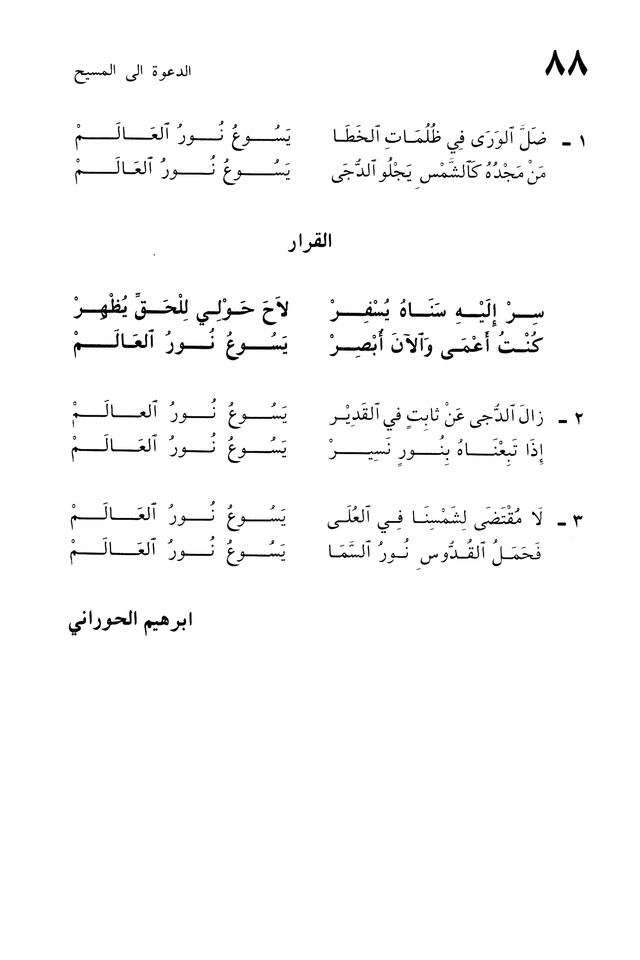 ٨٨
الدعوة الى المسيح
١ - ضَلَّ ٱلوَرَى فِي ظُلُمَاتِ ٱلخَطَا يَسُوعُ نُورُ ٱلعَالَمْ
مَنْ مَجْدُهُ كَٱلشَّمْسِ يَجْلُو ٱلدُّجَى يَسُوعُ نُورُ ٱلعَالَمْ
القرار
سِرْ إِلَيْهِ سَنَاهُ يُسْفِرْ لاَحَ حَوْلِي لِلْحَقِّ يُظْهِرْ
كُنْتُ أَعْمَى وَٱلآنَ أُبْصِرْ يَسُوعُ نُورُ ٱلعَالَمْ
٢ - زالَ ٱلدُّجى عَنْ ثابِتٍ في ٱلقَدِيْرِ يَسُوعُ نُورُ ٱلعالَمْ
إِذَا تَبِعْنَاهُ بِنُورٍ نَسِيرْ يَسُوعُ نُورُ ٱلعَالَمْ
٣ - لَا مُقْتَضَى لِشَمْسِنَا فِي ٱلعُلَى يَسُوعُ نُورُ ٱلعَالَمْ
فَحَمَلُ ٱلقُدُّوسِ نُورُ ٱلسَّمَا يَسُوعُ نُورُ ٱلعَالَمْ
ابرهيم الحوراني